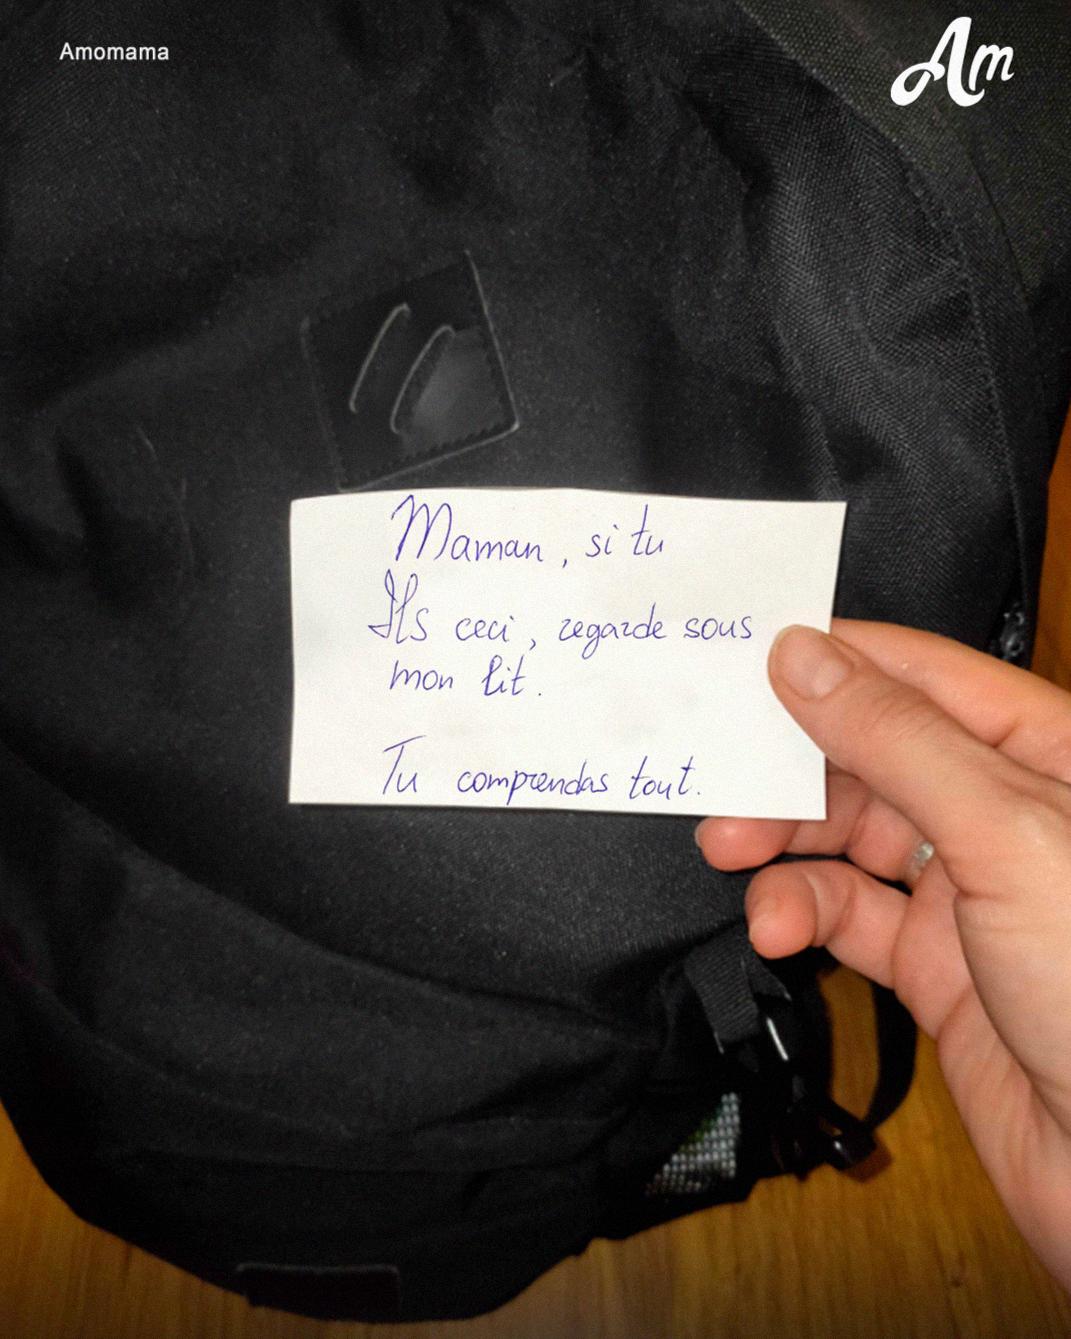 Amomama
Am
Maman, si tu
Ils ceci, regarde sous
mon lit.
Tu comprendas tout.